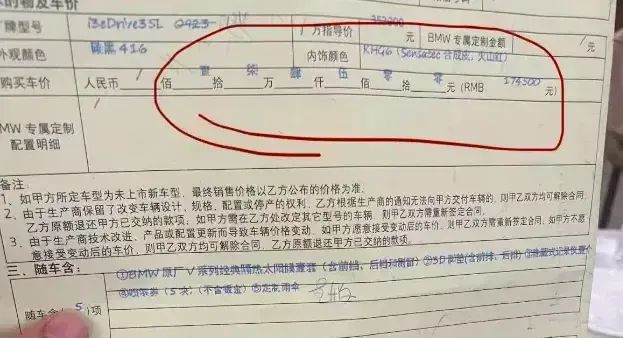 的物及车价
牌型号 i3eDrive35L 0423 厂方指导价 353900 元 BMW 专属定制金额 / 元
外观颜色 碳黑 416 内饰颜色 KHG6 (Sensatec 合成皮, 火山红)
购买车价 人民币 佰 壹 拾 柒 万 肆 仟 伍 佰 零 拾 零 元 (RMB 174500 元)
MW 专属定制
配置明细 /
备注:
1、如甲方所定车型为未上市新车型,最终销售价格以乙方公布的价格为准.
2、由于生产商保留了改变车辆设计、规格、配置或停产的权利,乙方根据生产商的通知无法向甲方交付车辆的,则甲乙双方均可解除合同,
乙方原额退还甲方已交纳的款项;如甲方需在乙方处改定其它型号的车辆,则甲乙双方需重新签定合同.
3、由于生产商技术改进、产品或配置更新而导致车辆价格变动,如甲方愿意接受变动后的车价,则甲乙双方需重新签定合同;如甲方不愿
意接受变动后的车价,则甲乙双方均可解除合同,乙方原额退还甲方已交纳的款项.
三、随车含:
①BMW原厂V系列经典隔热太阳膜壹套(含前档、后档和侧窗)②3D脚垫(含前排、后排)③隐藏式记录仪壹个
随车含 5 项 ④喷漆券(5次)(不含钣金)⑤定制雨伞